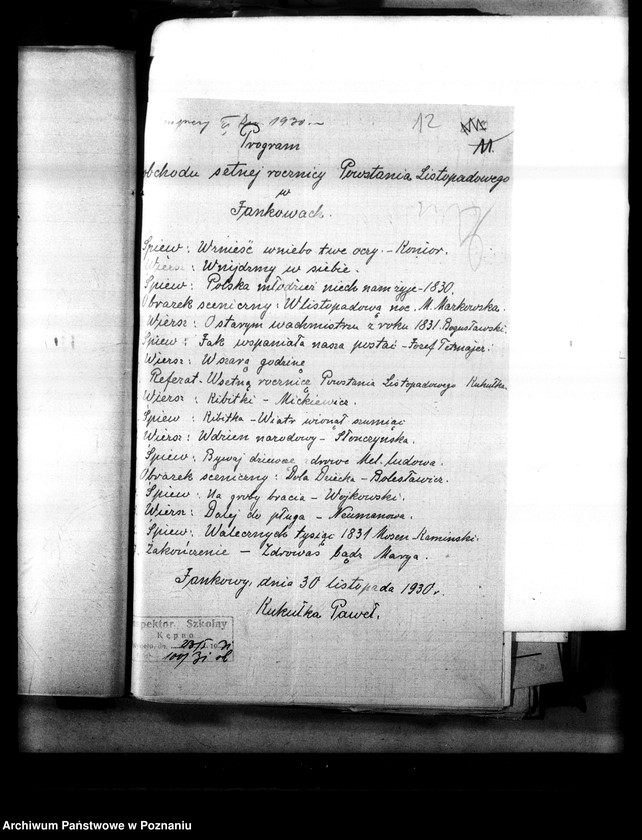 1930.
12
11.
Program
obchodu setnej rocznicy Powstania Listopadowego
w
Jankowach.
Śpiew: Wznieść wniebo twe oczy. - Konior.
Wiersz: Wnijdzmy w siebie.
Śpiew: Polska młodzież niech nam żyje - 1830.
Obrazek sceniczny: W listopadową noc. M. Markowska.
Wiersz: O starym wachmistrzu z roku 1831. Bogusławski.
Śpiew: Jak wspaniała nasza postać - Józef Tetmajer.
Wiersz: W szarą godzinę
Referat. W setną rocznicę Powstania Listopadowego Kukułka.
Wiersz: Kibitki - Mickiewicz.
Śpiew: Kibitka - Wiatr wionął szumiąc
Wiersz: W dzień narodowy - Słonczynska.
Śpiew: Bywaj dziewcze zdrowe Mel. ludowa.
Obrazek sceniczny: Dola Dziecka - Bolesławicz.
Śpiew: Na groby bracia - Wojkowski.
Wiersz: Dalej do pługa - Neumanowa.
Śpiew: Walecznych tysiąc 1831 Mosen-Kaminski.
Zakończenie - Zdrowaś bądź Marya.
Jankowy, dnia 30 listopada 1930 r.
Kukułka Paweł.
Inspektor Szkolny
Kępno
Archiwum Państwowe w Poznaniu